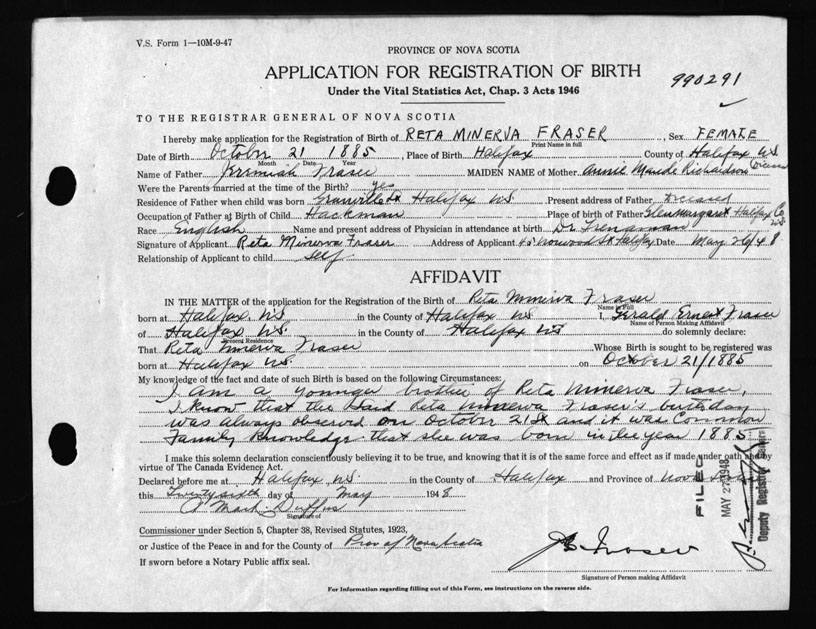 V.S. Form 1—10M-9-47
PROVINCE OF NOVA SCOTIA
APPLICATION FOR REGISTRATION OF BIRTH
990291
Under the Vital Statistics Act, Chap. 3 Acts 1946
TO THE REGISTRAR GENERAL OF NOVA SCOTIA
I hereby make application for the Registration of Birth of RETA MINERVA FRASER, Sex FEMALE
Print Name in full
Date of Birth October 21 1885, Place of Birth Halifax County of Halifax N.S.
Month Date Year
Name of Father Jeremiah Fraser MAIDEN NAME of Mother Annie Maude Richardson
Were the Parents married at the time of the Birth? yes
Residence of Father when child was born Granville St Halifax N.S. Present address of Father deceased
Occupation of Father at Birth of Child Hackman Place of birth of Father Glen Margaret Halifax Co
Race English Name and present address of Physician in attendance at birth Dr Trenaman
Signature of Applicant Reta Minerva Fraser Address of Applicant Norwood St Halifax Date May 26/48
Relationship of Applicant to child self
AFFIDAVIT
IN THE MATTER of the application for the Registration of the Birth of Reta Minerva Fraser
Name in Full
born at Halifax N.S. in the County of Halifax N.S. I, Gerald Ernest Fraser
Name of Person Making Affidavit
of Halifax N.S. in the County of Halifax N.S. do solemnly declare:
Present Residence
That Reta Minerva Fraser Whose Birth is sought to be registered was
born at Halifax N.S. on October 21/1885
My knowledge of the fact and date of such Birth is based on the following Circumstances:
I am a younger brother of Reta Minerva Fraser,
I know that the said Reta Minerva Fraser's birthday
was always observed on October 21st and it was Common
Family Knowledge that she was born in the year 1885
I make this solemn declaration conscientiously believing it to be true, and knowing that it is of the same force and effect as if made under oath and by
virtue of The Canada Evidence Act.
Declared before me at Halifax N.S. in the County of Halifax and Province of Nova Scotia
this Twenty sixth day of May 1948
A Mark Duffus
Signature of
Commissioner under Section 5, Chapter 38, Revised Statutes, 1923,
or Justice of the Peace in and for the County of Prov of Nova Scotia
If sworn before a Notary Public affix seal.
Fraser
Signature of Person making Affidavit
For Information regarding filling out of this Form, see instructions on the reverse side.
FILED
MAY 27 1948
Deputy Registrar